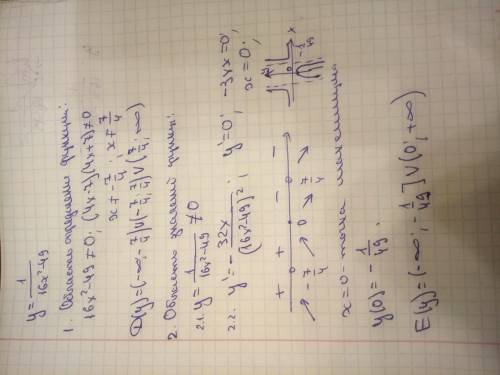 y = 1/(16x²-49)
1. Область определения функции:
16x²-49≠0; (4x-7)(4x+7)≠0
x≠-7/4; x≠7/4
D(y)=(-∞;-7/4)∪(-7/4;7/4)∪(7/4;∞)
2. Область значений функции:
2.1. y = 1/(16x²-49) ≠0
2.2. y' = - 32x/(16x²-49)²; y'=0; -32x=0;
x=0;
+ + - - x
↗ -7/4 ↗ 0 ↘ 7/4 ↘
0 -1/49
x=0 - точка максимума
y(0)=-1/49.
E(y)=(-∞;-1/49]∪(0;+∞)